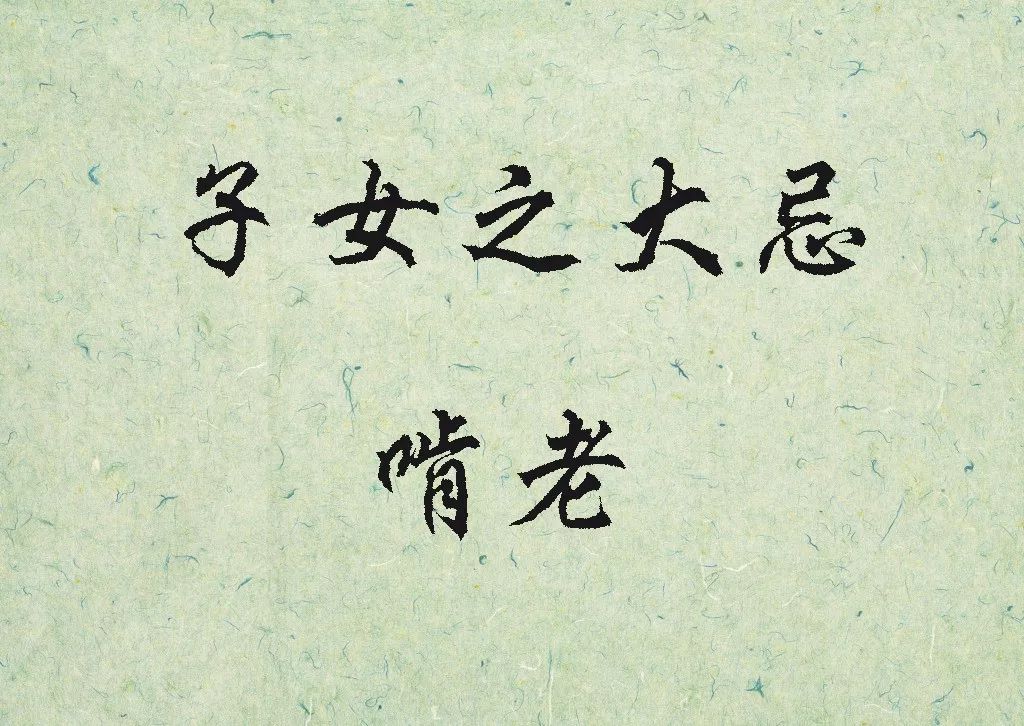 子女之大忌
啃老